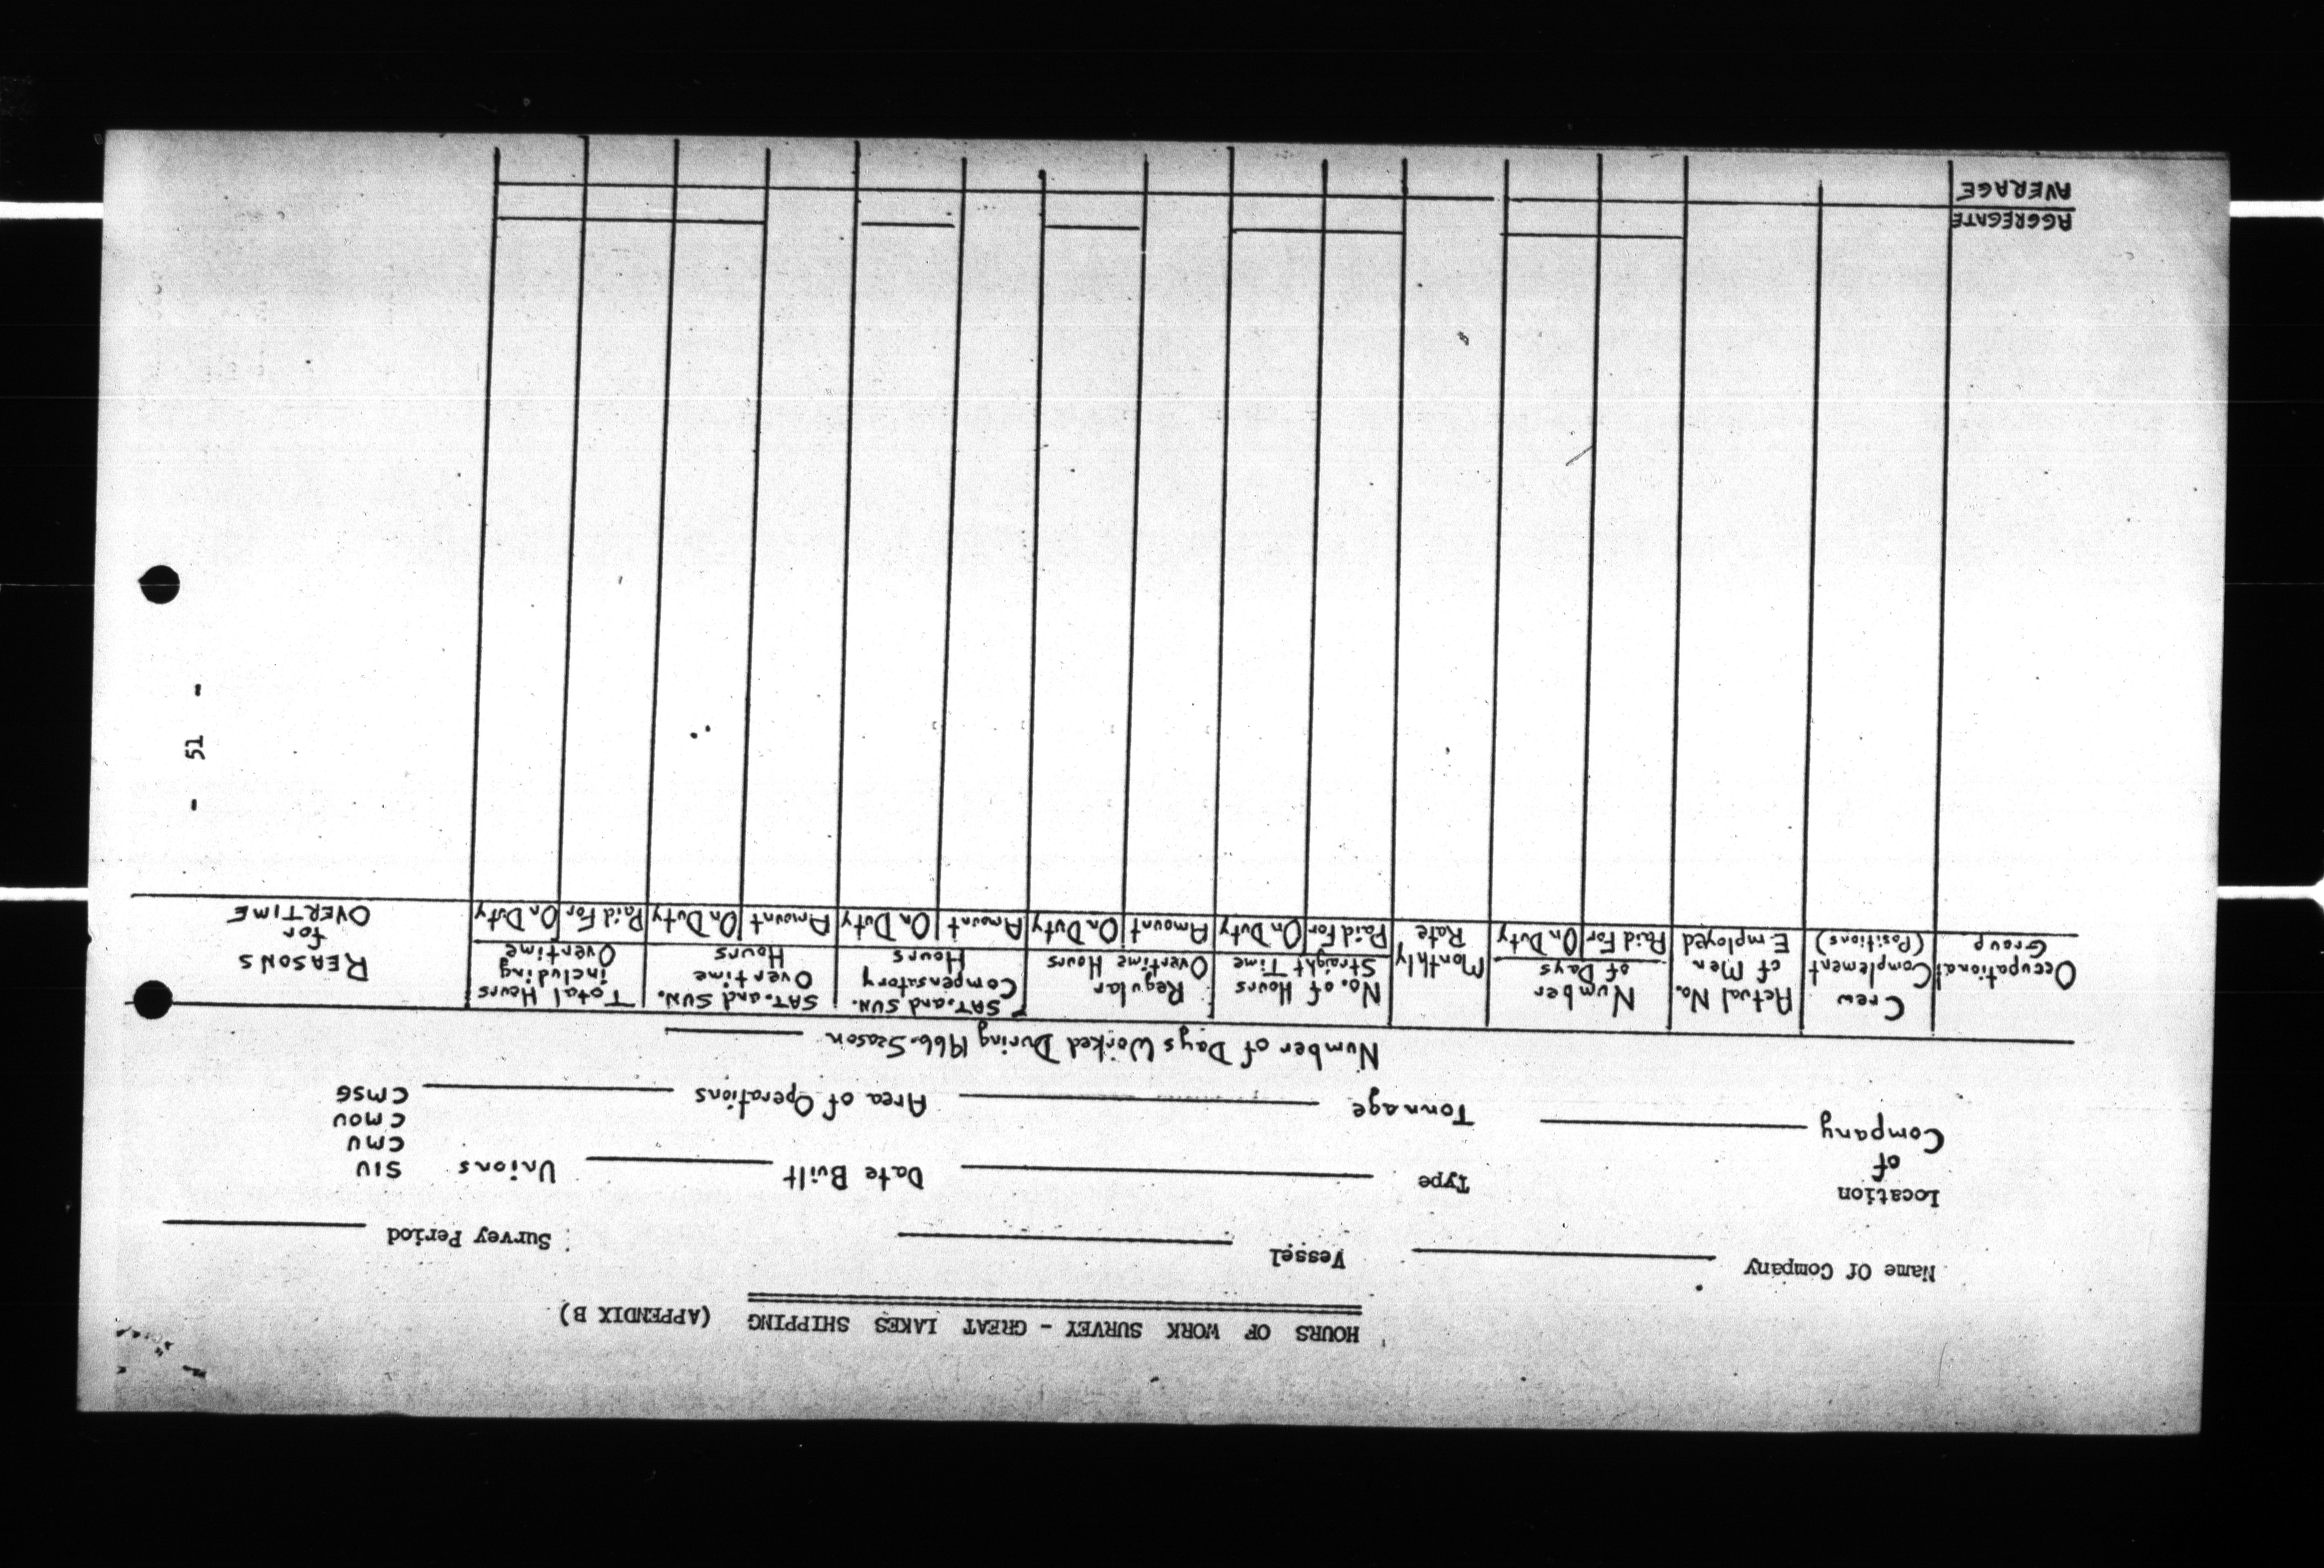 HOURS OF WORK SURVEY - GREAT LAKES SHIPPING (APPENDIX B)
Name Of Company Vessel Survey Period
Location of Company Type Date Built Unions SIU
CMU
CMOU
Tonnage Area of Operations CMSG
Number of Days Worked During 1966-Season
Occupational Group
Crew Complement (Positions)
Actual No. of Men Employed
Number of Days
Paid For On Duty
Monthly Rate
No. of Hours Straight Time
Paid For On Duty
Regular Overtime Hours
Amount On Duty
SAT. and SUN. Compensatory Hours
Amount On Duty
SAT. and SUN. Overtime Hours
Amount On Duty
Total Hours including Overtime
Paid For On Duty
REASONS for OVERTIME
AGGREGATE
AVERAGE
- 51 -